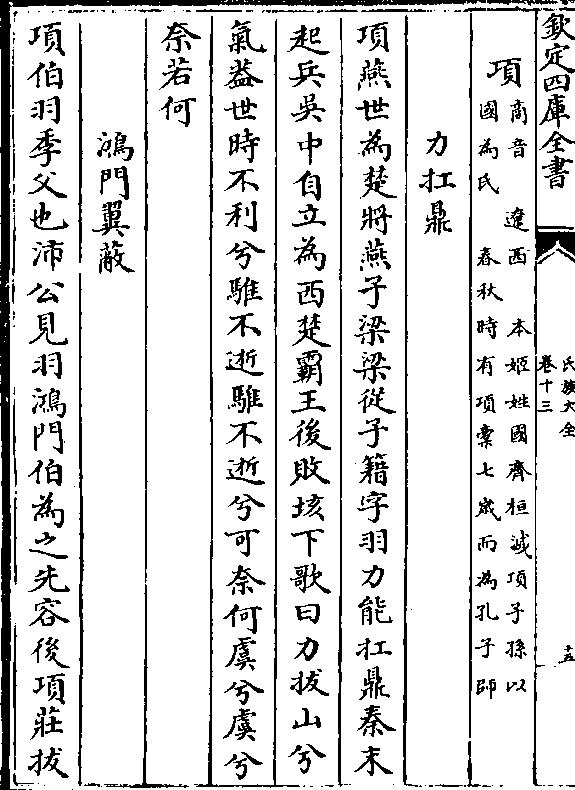 欽定四庫全書
氏族大全
卷十三
十五
項
商音　遼西　本姬姓國齊桓滅項子孫以
國為氏　春秋時有項橐七歲而為孔子師
力扛鼎
項燕世為楚將燕子梁梁從子籍字羽力能扛鼎秦末
起兵吳中自立為西楚霸王後敗垓下歌曰力拔山兮
氣葢世時不利兮騅不逝騅不逝兮可奈何虞兮虞兮
奈若何
鴻門翼蔽
項伯羽季父也沛公見羽鴻門伯為之先容後項莊拔